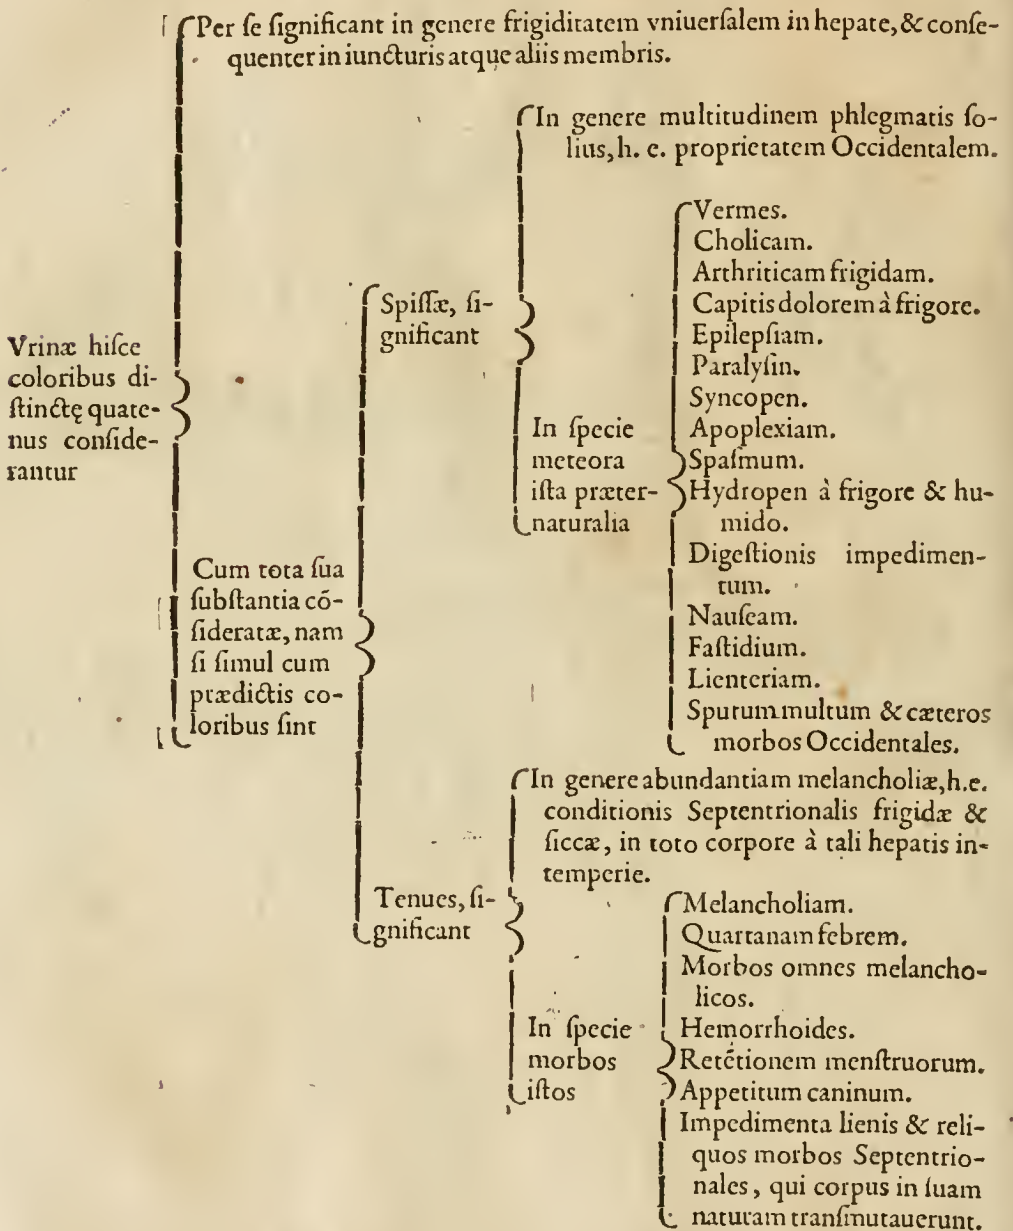 Per ſe ſignificant in genere frigiditatem vniuerſalem in hepate, & conſe-
quenter in iuncturis atque aliis membris.
Vrinæ hiſce
coloribus di-
ſtinctę quate-
nus conſide-
rantur
Cum tota ſua
ſubſtantia cō-
ſideratæ, nam
ſi ſimul cum
prædictis co-
loribus ſint
Spiſſæ, ſi-
gnificant
In genere multitudinem phlegmatis ſo-
lius, h. e. proprietatem Occidentalem.
In ſpecie
meteora
iſta præter-
naturalia
Vermes.
Cholicam.
Arthriticam frigidam.
Capitis dolorem à frigore.
Epilepſiam.
Paralyſin.
Syncopen.
Apoplexiam.
Spaſmum.
Hydropen à frigore & hu-
mido.
Digeſtionis impedimen-
tum.
Nauſeam.
Faſtidium.
Lienteriam.
Sputum multum & cæteros
morbos Occidentales.
Tenues, ſi-
gnificant
In genere abundantiam melancholiæ, h. e.
conditionis Septentrionalis frigidæ &
ſiccæ, in toto corpore à tali hepatis in-
temperie.
In ſpecie
morbos
iſtos
Melancholiam.
Quartanam febrem.
Morbos omnes melancho-
licos.
Hemorrhoides.
Retētionem menſtruorum.
Appetitum caninum.
Impedimenta lienis & reli-
quos morbos Septentrio-
nales, qui corpus in ſuam
naturam tranſmutauerunt.